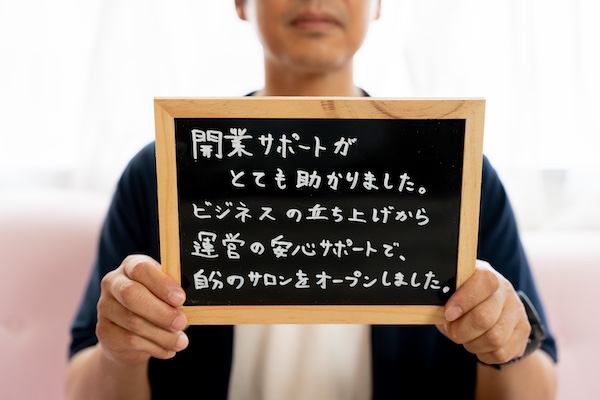 開業サポートが
とても助かりました。
ビジネスの立ち上げから
運営の安心サポートで、
自分のサロンをオープンしました。